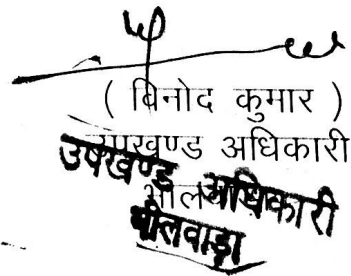 ( विनोद कुमार )
उपखण्ड अधिकारी
उपखण्ड अधिकारी
भीलवाड़ा